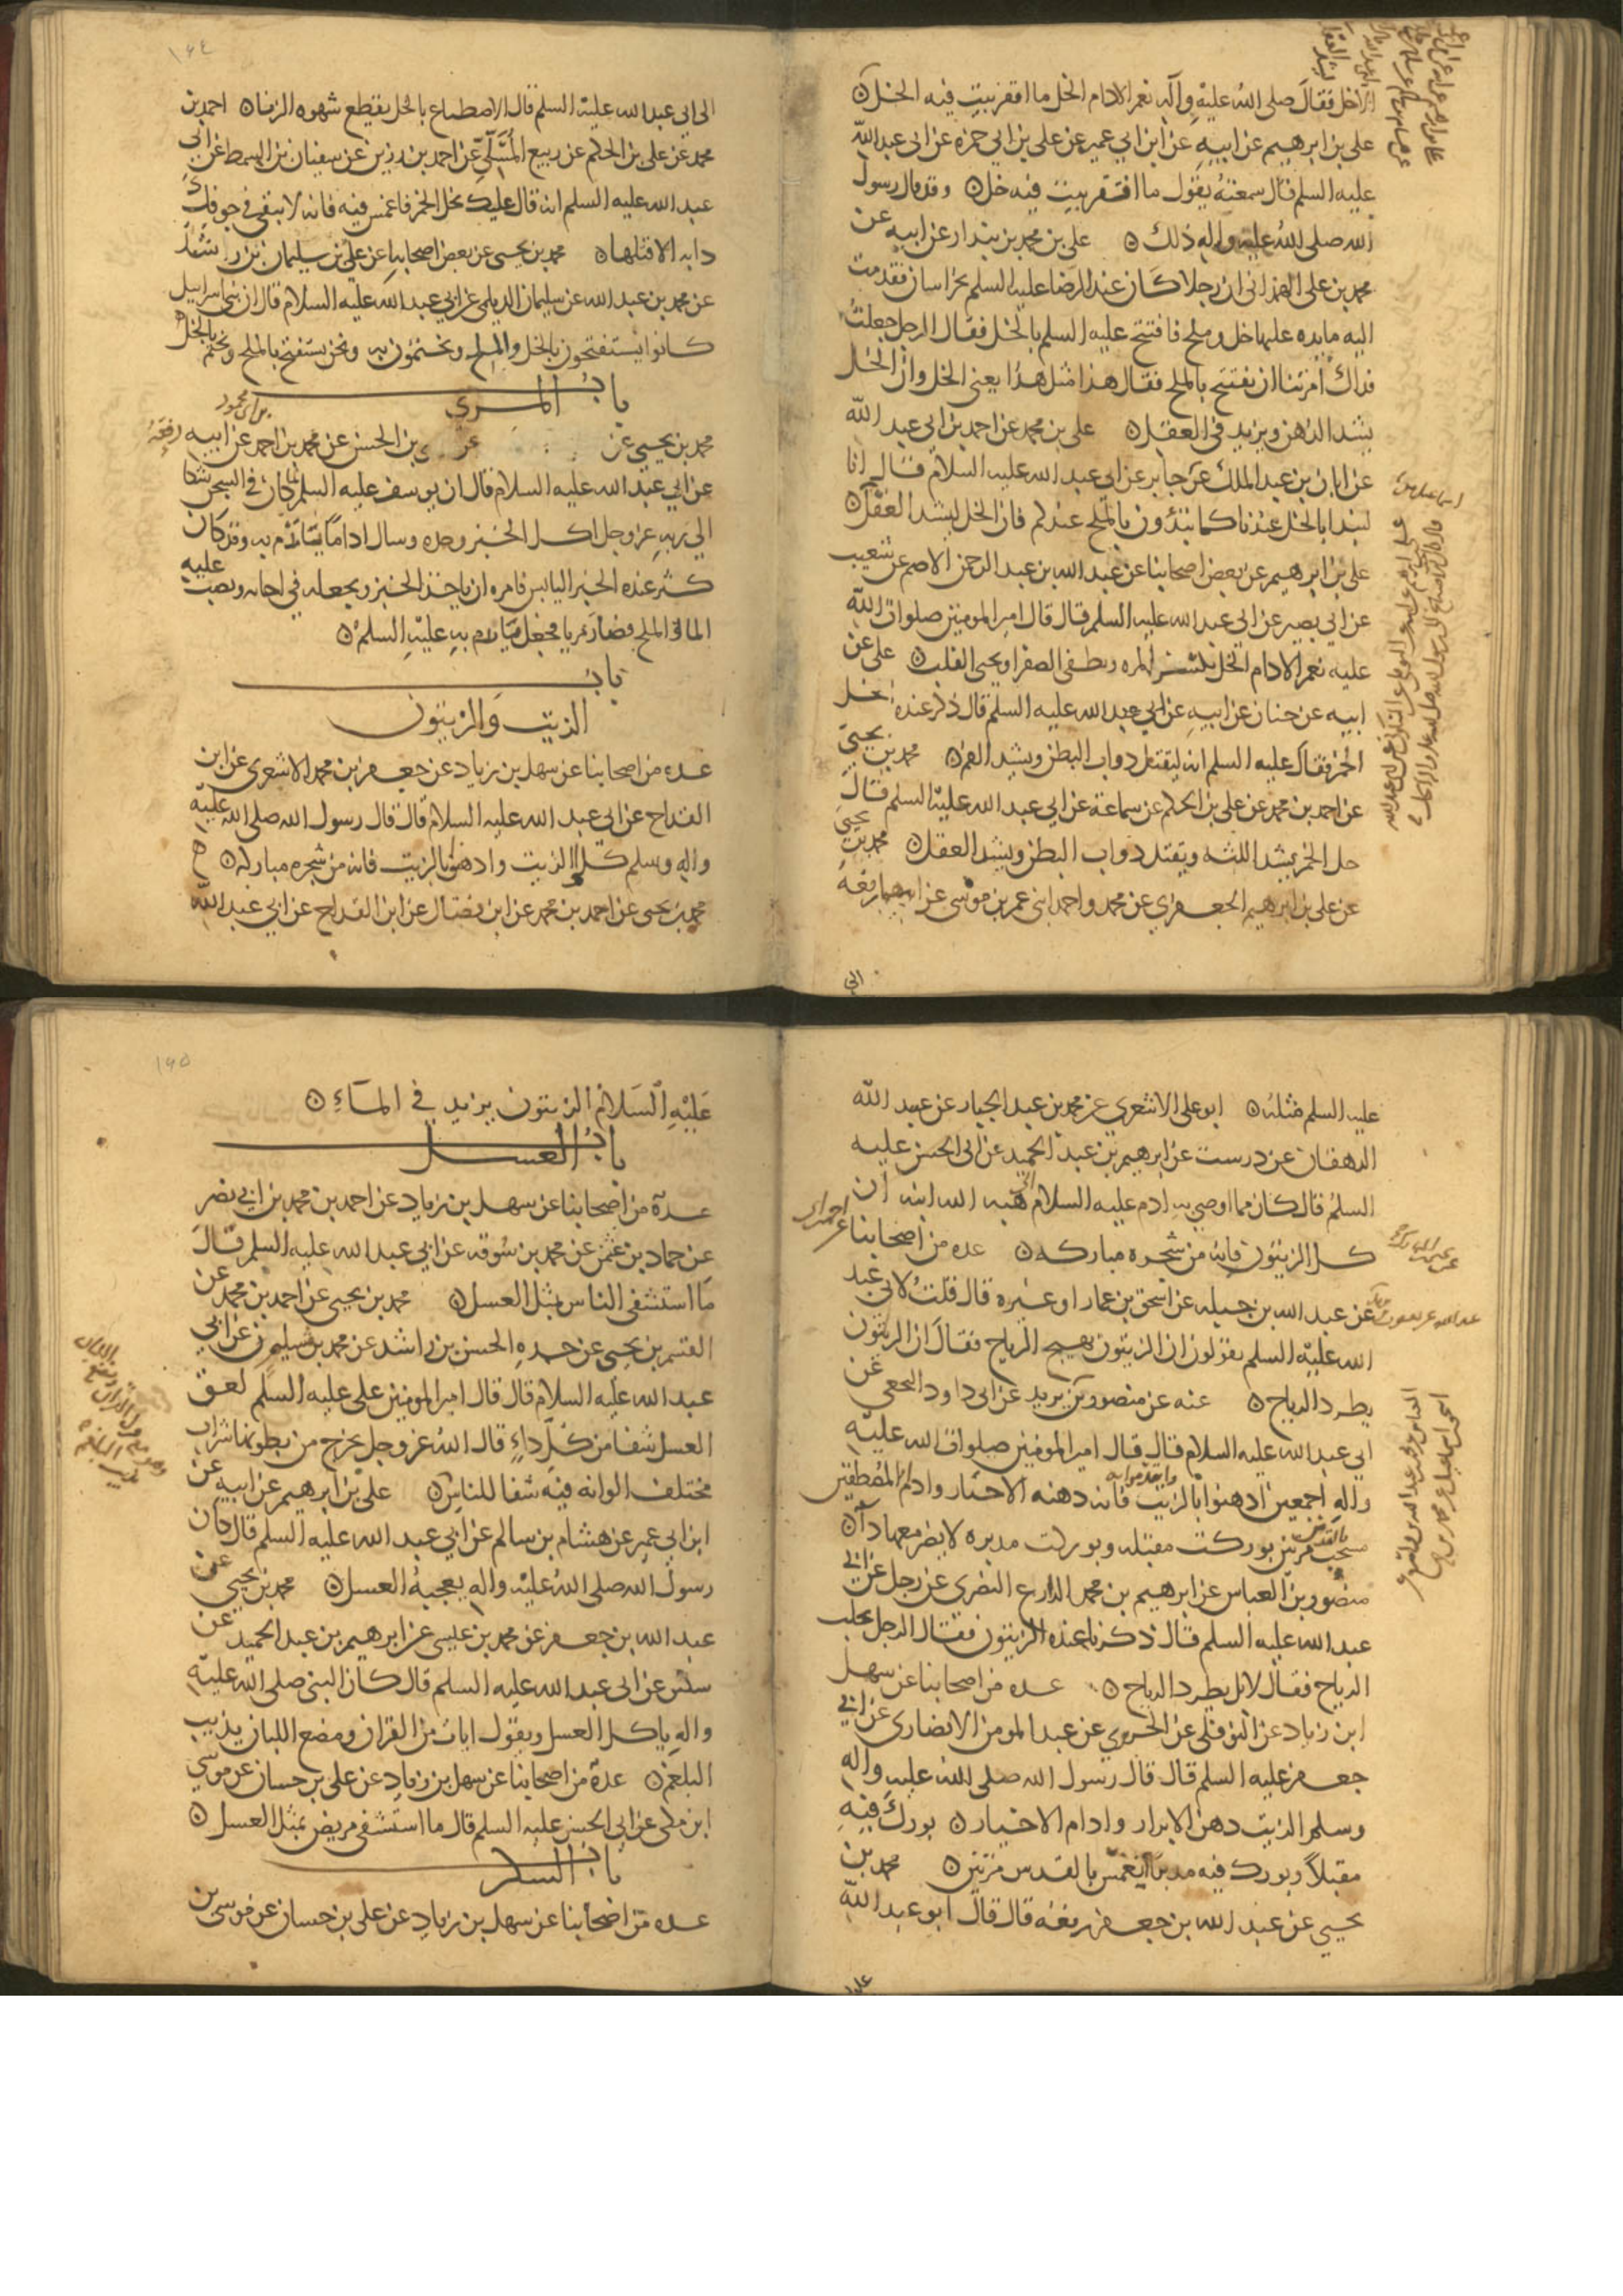 الا خل فقال صلى الله عليه وآله نعم الادام الخل ما اقفر بيت فيه الخل ٥
علي بن ابرهيم عن ابيه عن ابن ابي عمير عن علي بن ابي حمزه عن ابي عبد الله
عليه السلم قال سمعته يقول ما افتقر بيت فيه خل ٥ وقد قال رسول
الله صلى الله عليه واله ذلك ٥ علي بن محمد بن بندار عن ابيه عن
محمد بن علي الهمذاني ان رجلا كان عند الرضا عليه السلم بخراسان فقدمت
اليه مايده عليها خل وملح فافتتح عليه السلم بالخل فقال الرجل جعلت
فداك امرتنا ان نفتتح بالملح فقال هذا مثل هذا يعني الخل وان الخل
يشد الذهن ويزيد في العقل ٥ علي بن محمد عن احمد بن ابي عبد الله
عن ابان بن عبد الملك عن جابر عن ابي عبد الله عليه السلام قال انا
لنبدا بالخل عندنا كما تبدؤن بالملح عندكم فان الخل ليشد العقل ٥
علي بن ابرهيم عن بعض اصحابنا عن عبد الله بن عبد الرحمن الاصم عن شعيب
عن ابي بصير عن ابي عبد الله عليه السلم قال قال امير المومنين صلوات الله
عليه نعم الادام الخل يكسر المره ويطفي الصفرا ويحيى القلب ٥ علي عن
ابيه عن حنان عن ابيه عن ابي عبد الله عليه السلم قال ذكر عنده خل
الخمر فقال عليه السلم انه ليقتل دواب البطن ويشد الفم ٥ محمد بن يحيى
عن احمد بن محمد عن علي بن الحكم عن سماعة عن ابي عبد الله عليه السلم قال
خل الخمر يشد اللثه ويقتل دواب البطن ويشد العقل ٥ محمد بن يحيى
عن علي بن ابرهيم الجعفري عن محمد واحمد ابني عمر بن موسى عن ابيهما رفعه
الى
١٦٤
الى ابي عبد الله عليه السلم قال الاصطباغ بالخل يقطع شهوه الزنا ٥ احمد بن
محمد عن علي بن الحكم عن ربيع المسلي عن احمد بن رزين عن سفيان بن السمط عن ابي
عبد الله عليه السلم انه قال عليك بخل الخمر فاغمس فيه فانه لا يبقى في جوفك
دابه الا قتلها ٥ محمد بن يحيى عن بعض اصحابنا عن علي بن سليمان بن راشد
عن محمد بن عبد الله عن سليمان الديلمي عن ابي عبد الله عليه السلام قال ان بني اسراييل
كانوا يستفتحون بالخل والملح ويختمون به ونحن نستفتح بالملح ونختم بالخل ٥
باب المري
محمد بن يحيى عن عن بن الحسن عن محمد بن احمد عن ابيه رفعه
عن ابي عبد الله عليه السلام قال ان يوسف عليه السلم لما كان في السجن شكا
الى ربه عز وجل اكل الخبز وحده وسال اداما يتأدم به وقد كان
كثر عنده الخبز اليابس فامره ان ياخذ الخبز ويجعله في اجانه ويصب عليه
الما والملح فصار مريا فجعل يتأدم به عليه السلم ٥
باب
الزيت والزيتون
عده من اصحابنا عن سهل بن زياد عن جعفر بن محمد الاشعري عن ابن
القداح عن ابي عبد الله عليه السلام قال قال رسول الله صلى الله عليه
واله وسلم كلوا الزيت وادهنوا بالزيت فانه من شجره مباركه ٥
محمد بن يحيى عن احمد بن محمد عن ابن فضال عن ابن القداح عن ابي عبد الله
عليه السلم مثله ٥ ابو علي الاشعري عن محمد بن عبد الجبار عن عبيد الله
الدهقان عن درست عن ابرهيم بن عبد الحميد عن ابي الحسن عليه
السلم قال كان مما اوصي به ادم عليه السلام الى هبه الله ابنه ان
كل الزيتون فانه من شجره مباركه ٥ عده من اصحابنا عن احمد بن
عن عبد الله بن جبله عن اسحق بن عمار او غيره قال قلت لابي عبد
الله عليه السلم يقولون ان الزيتون يهيج الرياح فقال ان الزيتون
يطرد الرياح ٥ عنه عن منصور بن يزيد عن ابي داود النخعي عن
ابي عبد الله عليه السلام قال قال امير المومنين صلوات الله عليه
واله اجمعين ادهنوا بالزيت وايتدموا به فانه دهنه الاخيار وادام المصطفين
مسحت بالقدس مرتين بوركت مقبله وبوركت مدبره لا يضر معها داء ٥
منصور بن العباس عن ابرهيم بن محمد الذارع البصري عن رجل عن ابي
عبد الله عليه السلم قال ذكرنا عنده الزيتون فقال الرجل يجلب
الرياح فقال لا بل يطرد الرياح ٥ عده من اصحابنا عن سهل
ابن زياد عن النوفلي عن الجريري عن عبد المومن الانصاري عن ابي
جعفر عليه السلم قال قال رسول الله صلى الله عليه واله
وسلم الزيت دهن الابرار وادام الاخيار ٥ بورك فيه
مقبلا وبورك فيه مدبرا انغمس بالقدس مرتين ٥ محمد بن
يحيى عن عبد الله بن جعفر رفعه قال قال ابو عبد الله
عليه
١٦٥
عليه السلام الزيتون يزيد في الماء ٥
باب العسل
عدة من اصحابنا عن سهل بن زياد عن احمد بن محمد بن ابي نصر
عن حماد بن عثمن عن محمد بن سوقه عن ابي عبد الله عليه السلم قال
ما استشفى الناس بمثل العسل ٥ محمد بن يحيى عن احمد بن محمد عن
القسم بن يحيى عن جده الحسن بن راشد عن محمد بن مسلم عن ابي
عبد الله عليه السلام قال قال امير المومنين علي عليه السلم لعق
العسل شفا من كل داء قال الله عز وجل يخرج من بطونها شراب
مختلف الوانه فيه شفا للناس ٥ علي بن ابرهيم عن ابيه عن
ابن ابي عمير عن هشام بن سالم عن ابي عبد الله عليه السلم قال كان
رسول الله صلى الله عليه واله يعجبه العسل ٥ محمد بن يحيى عن
عبد الله بن جعفر عن محمد بن عيسى عن ابرهيم بن عبد الحميد عن
سكين عن ابي عبد الله عليه السلم قال كان النبي صلى الله عليه
واله ياكل العسل ويقول ايات من القران ومضغ اللبان يذيب
البلغم ٥ عدة من اصحابنا عن سهل بن زياد عن علي بن حسان عن موسى
ابن بكر عن ابي الحسن عليه السلم قال ما استشفى مريض بمثل العسل ٥
باب السكر
عده من اصحابنا عن سهل بن زياد عن علي بن حسان عن موسى بن